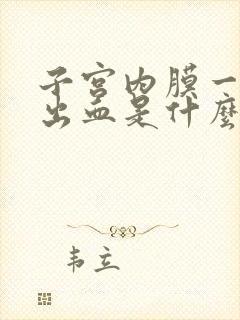 子宫内膜一
出血是什麽
韦立